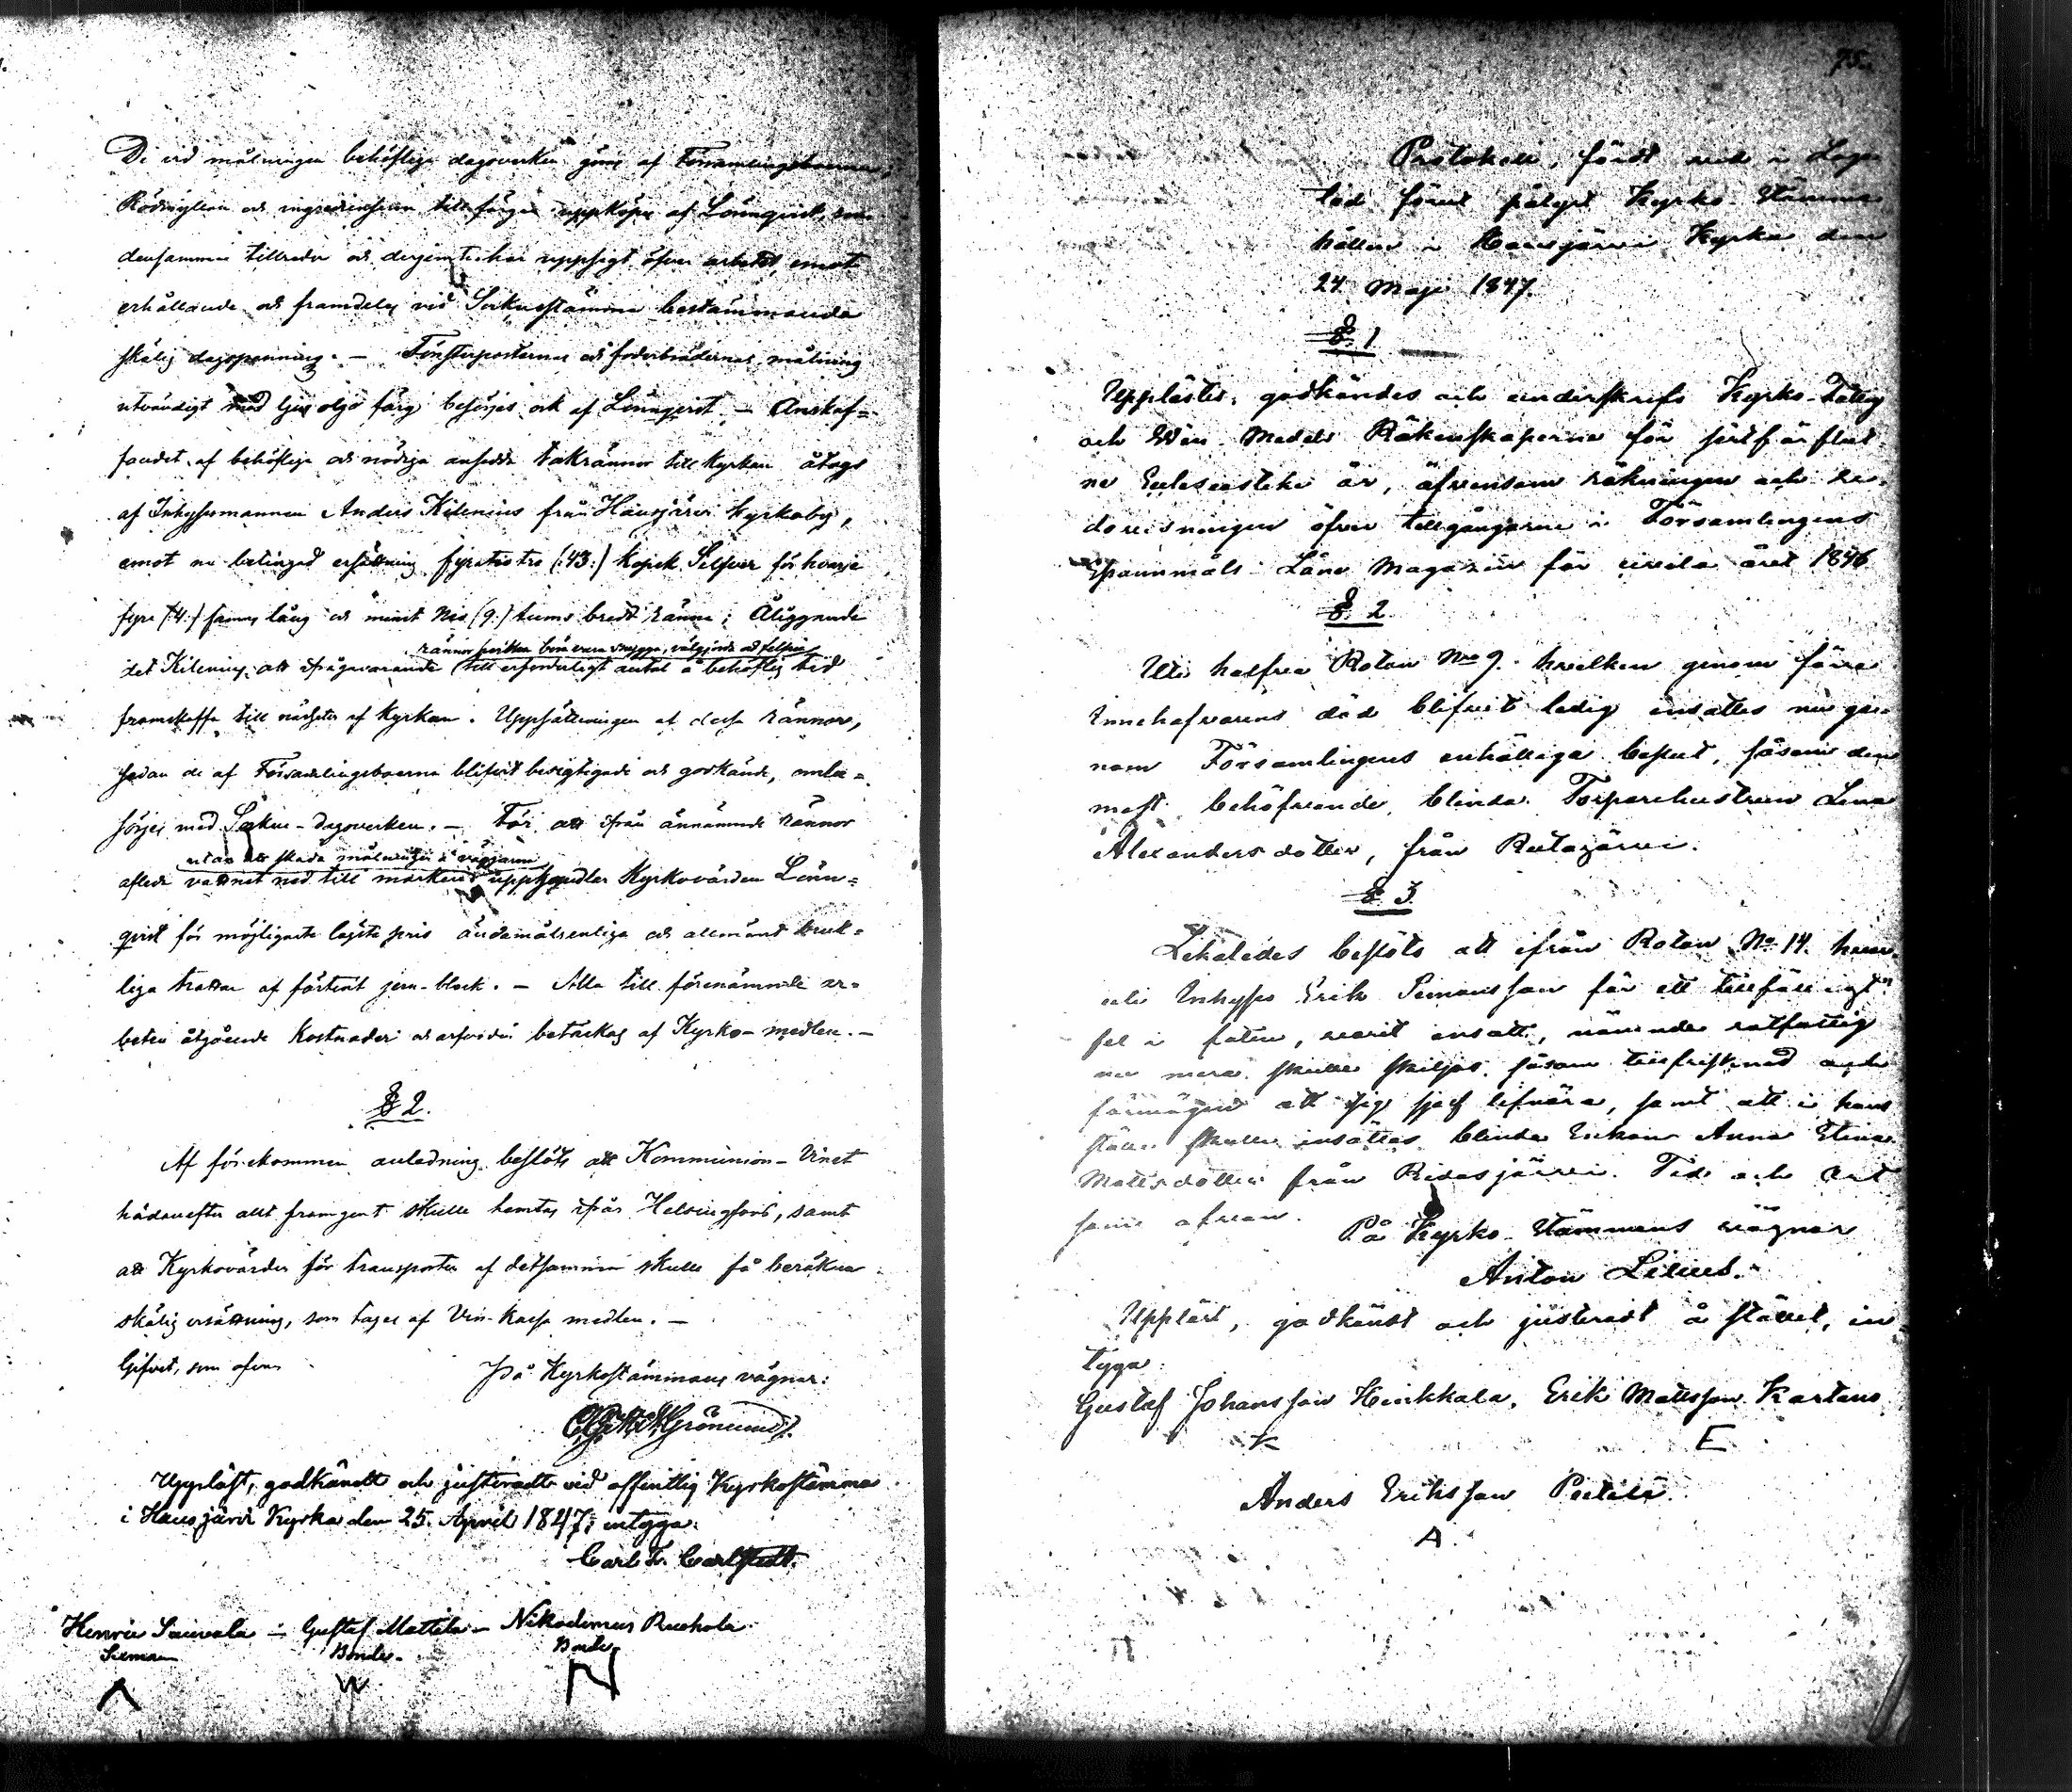 De vid målningen behöflige dagsverken göras af Församlingsboerne,
Rödmyllan och ingredienserna till färgen uppköpes af Lönnqvist, som
densamma tillreder och derjemte har uppsigt öfver arbetet, emot
erhållande och framdeles vid Sockenstämma bestämmande
skälig dagspenning. — Fönsterposternas och foderbrädernas målning
utvändigt med ljus oljefärg besörjes ock af Lönnqvist. — Anskaf=
fandet af behöflige och nödiga ansedde takrännor till Kyrkan åtogs
af Inhysesmannen Anders Kilenius från Hausjärvi Kyrkoby,
emot nu betingad ersättning fyratiotre (:43:) kopek Silfver för hvarje
fyra (:4:) famns lång och minst nio (9:) tums bredt ränna; Åliggande
rännor hvilka böra vara snygga, välgjorda och felfria
det Kilenius att ifrågavarande till erforderligt antal å behöflig tid
framskaffa till närheten af Kyrkan. Uppsättningen af dessa rännor,
sedan de af Församlingsboerna blifvit besigtigade och godkände, ombe=
sörjes med Sokne-dagsverken. — För att ifrån ännämnde rännor
utan att skada målningen å väggarne
afleda vattnet ned till marken upphandlar Kyrkovärden Lönn=
qvist för möjligaste lägsta pris ändamålsenliga och allmänt bruk=
liga trattar af förtent jern-bleck. — Alla till förenämnde ar=
beten åtgående kostnader och arfvoden betäckas af Kyrko-medlen. —
§ 2.
Af förekommen anledning beslöts att Kommunion-Vinet
hädanefter allt framgent skulle hemtas ifrån Helsingfors, samt
att Kyrkovärden för transporten af detsamma skulle få beräkna
skälig ersättning, som tages af Vin-kassa medlen. —
Gifvet, som ofvan
På Kyrkostämmans vägnar:
Grönlund.
Uppläst, godkändt och justeradt vid offentlig Kyrkostämma
i Hausjärvi Kyrka den 25. April 1847; intyga:
Carl F. Carlstedt.
Henric Sauvala — Gustaf Mattila — Nikodemus Ruohola
Bonde. Bonde
N
75.
Protokoll, fördt vid i Laga
tid förut pålyst Kyrko-Stämma
hållen i Hausjärvi Kyrka den
24 Maji 1847.
§. 1
Upplästes, godkändes och underskrefs Kyrko-Fattig
och Vin-Medels Räkenskaperne för sistförflut
ne Ecclesiastike år, äfvensom räkningen och re
dovisningen öfver tillgångarne i Församlingens
Spannmåls Låne Magazin för civila året 1846
§. 2
Uti halfva Rotan Nro 9. hvilken genom förra
Innehafvarens död blifvit ledig insattes nu ge
nom Församlingens enhälliga beslut, såsom den
mest behöfvande, blinda Torparehustrun Lena
Alexandersdotter, från Rutajärvi.
§. 3.
Likaledes beslöts att ifrån Rotan No 14. hvar
uti Inhyses Erik Simonsson för ett tillfälligt
fel i foten, varit insatt, nämnde rotfattig
nu mera skulle skiljas, såsom tillfrisknad och
förmögen att sig sjelf lifnära, samt att i hans
ställe skulle insättas blinda Enkan Anna Stina
Mattsdotter från Ridasjärvi. Tid och Ort
som ofvan.
På Kyrko-Stämmans vägnar
Anton Lilius.
Uppläst, godkändt och justeradt å stället, in
tyga:
Gustaf Johansson Heikkala. Erik Mattsson Kartano
K E
Anders Eriksson Pietilä.
A